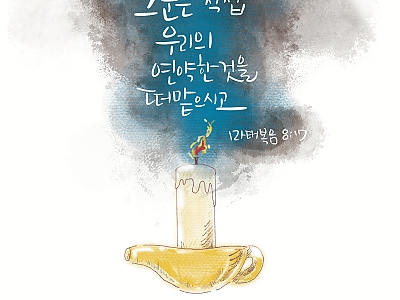 그분은 직접
우리의
연약한 것을
떠맡으시고
마태복음 8:17